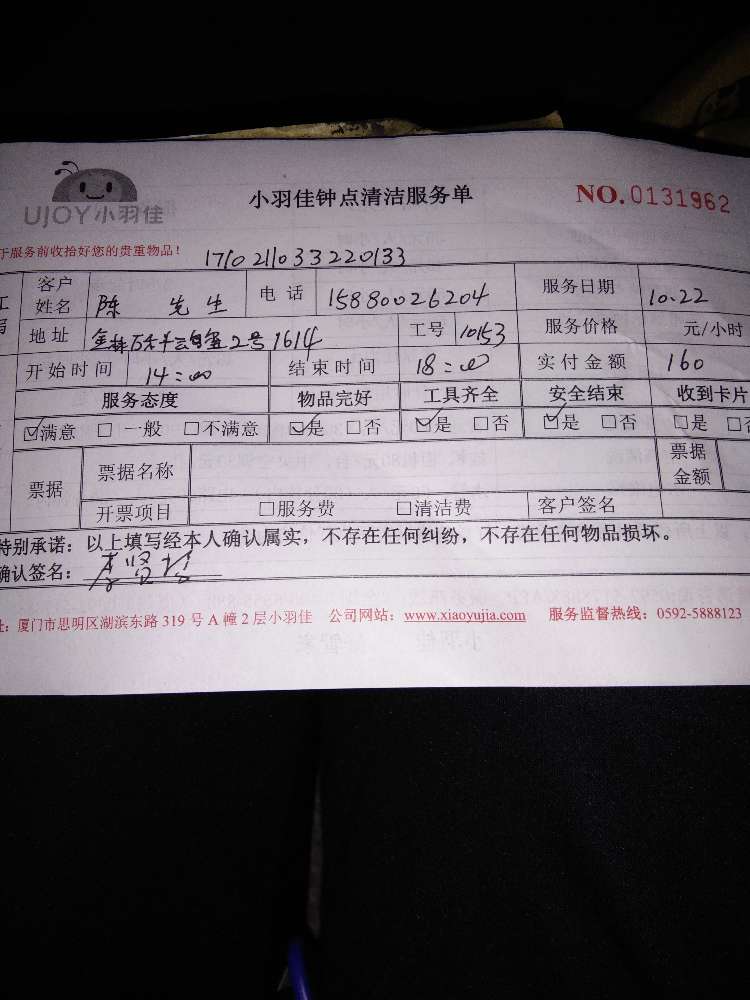 UJOY小羽佳
小羽佳钟点清洁服务单
NO.0131962
于服务前收拾好您的贵重物品！
171021103322013​3
客户姓名 陈 先生 电话 15880026204 服务日期 10.22
地址 2号1614 工号 10153 服务价格 元/小时
开始时间 14:00 结束时间 18:00 实付金额 160
服务态度 物品完好 工具齐全 安全结束 收到卡片
☑满意 □一般 □不满意 ☑是 □否 ☑是 □否 ☑是 □否 □是 □否
票据 票据名称 票据金额
开票项目 □服务费 □清洁费 客户签名
特别承诺：以上填写经本人确认属实，不存在任何纠纷，不存在任何物品损坏。
确认签名：
址：厦门市思明区湖滨东路 319 号 A 幢 2 层小羽佳 公司网站：www.xiaoyujia.com 服务监督热线：0592-5888123